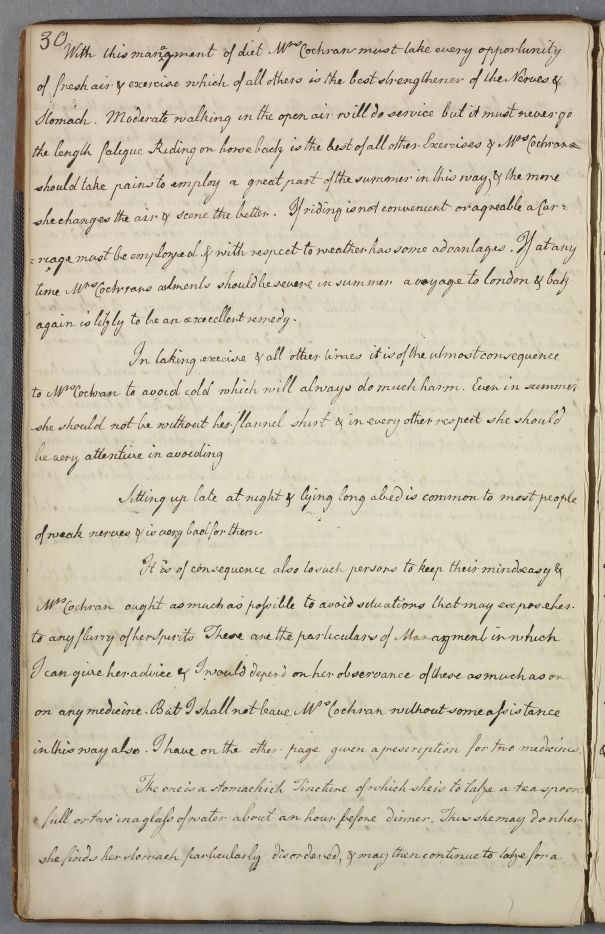 30
With this managment of diet Mrs Cochran must take every opportunity
of fresh air & exercise which of all others is the best strengthener of the Nerves &
Stomach. Moderate walking in the open air will do service but it must never go
the length fatigue Riding on horse back is the best of all other Exercises & Mrs Cochran
should take pains to employ a great part of the summer in this way, & the more
she changes the air & scene the better. If riding is not convenient or agreable a Car-
-riage must be employed & with respect to weather has some advantages. If at any
time Mrs Cochrans ailments should be severe in summer a voyage to london & back
again is likly to be an excellent remedy.
In taking exercise & all other times it is of the utmost consequence
to Mrs Cochran to avoid cold which will always do much harm. Even in summer
she should not be without her flannel shirt & in every other respect she should
be very attentive in avoiding
Sitting up late at night & lying long abed is common to most people
of weak nerves & is very bad for them.
It is of consequence also to such persons to keep their minds easy &
Mrs Cochran ought as much as possible to avoid situations that may expose her
to any flurry of her Spirits These are the particulars of Managment in which
I can give her advice & I would depend on her observance of these as much as on
on any medicine. But I shall not leave Mrs Cochran without some assistance
in this way also. I have on the other page given a prescription for two medicines.
The one is a stomachick Tincture of which she is to take a tea spoon-
full or two in a glass of water about an hour before dinner. This she may do when
she finds her stomach particularly disordered, & may then continue to take for a